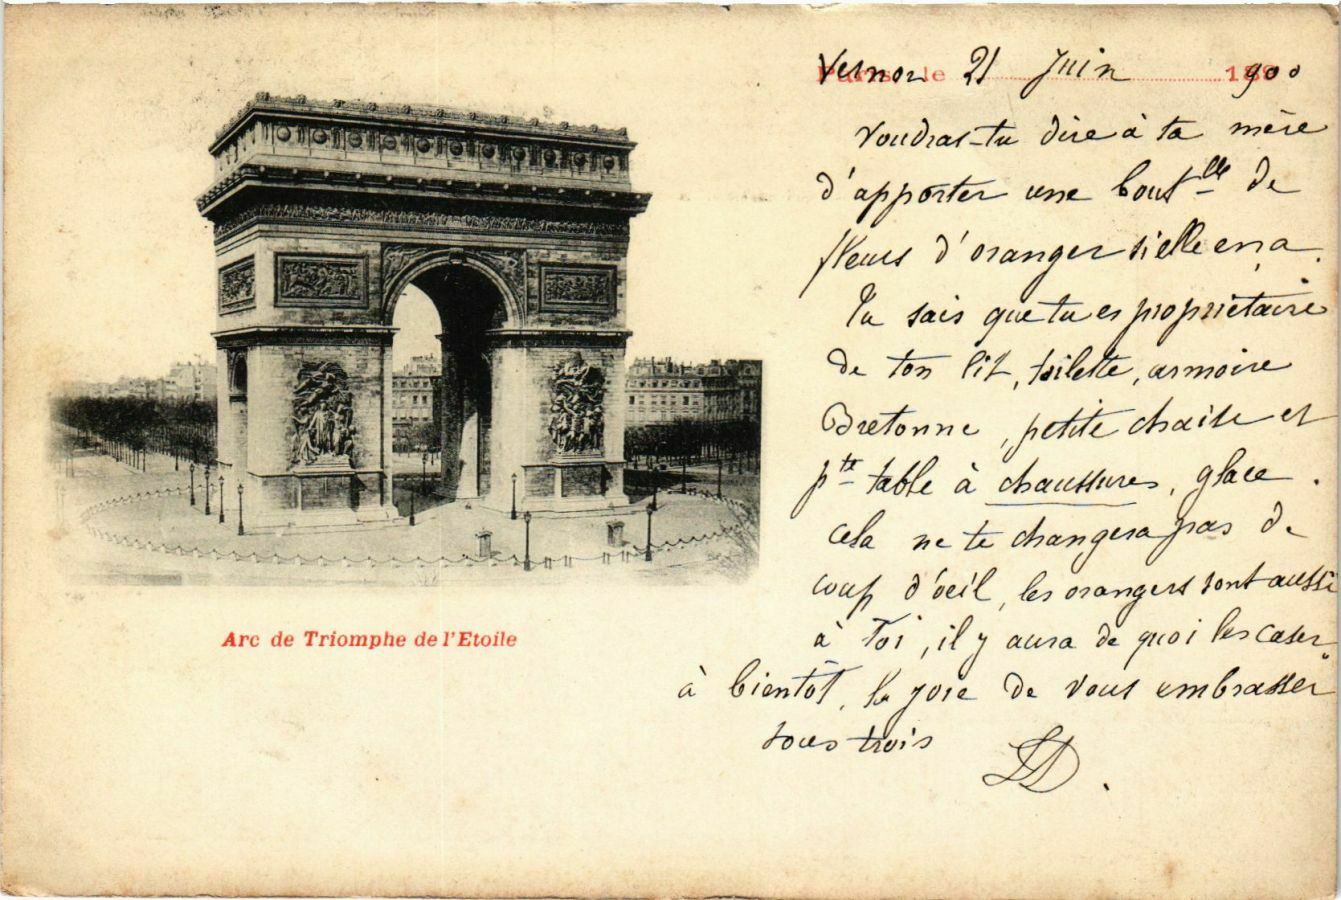 Vernon 21 Juin 900
Paris, le 189
Voudras-tu dire à ta mère
d'apporter une bout^lle de
fleurs d'oranger si elle en a.
Tu sais que tu es propriétaire
de ton lit, toilette, armoire
Bretonne, petite chaise et
p^te table à chaussures, glace.
Cela ne te changera pas de
coup d'œil, les orangers sont aussi
à Toi, il y aura de quoi les caser.
à bientôt, la joie de vous embrasser
tous trois
Arc de Triomphe de l'Etoile